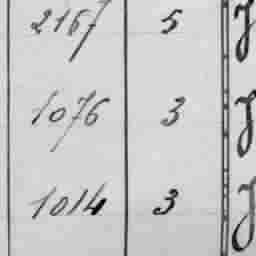 2167 5
1076 3
1014 3